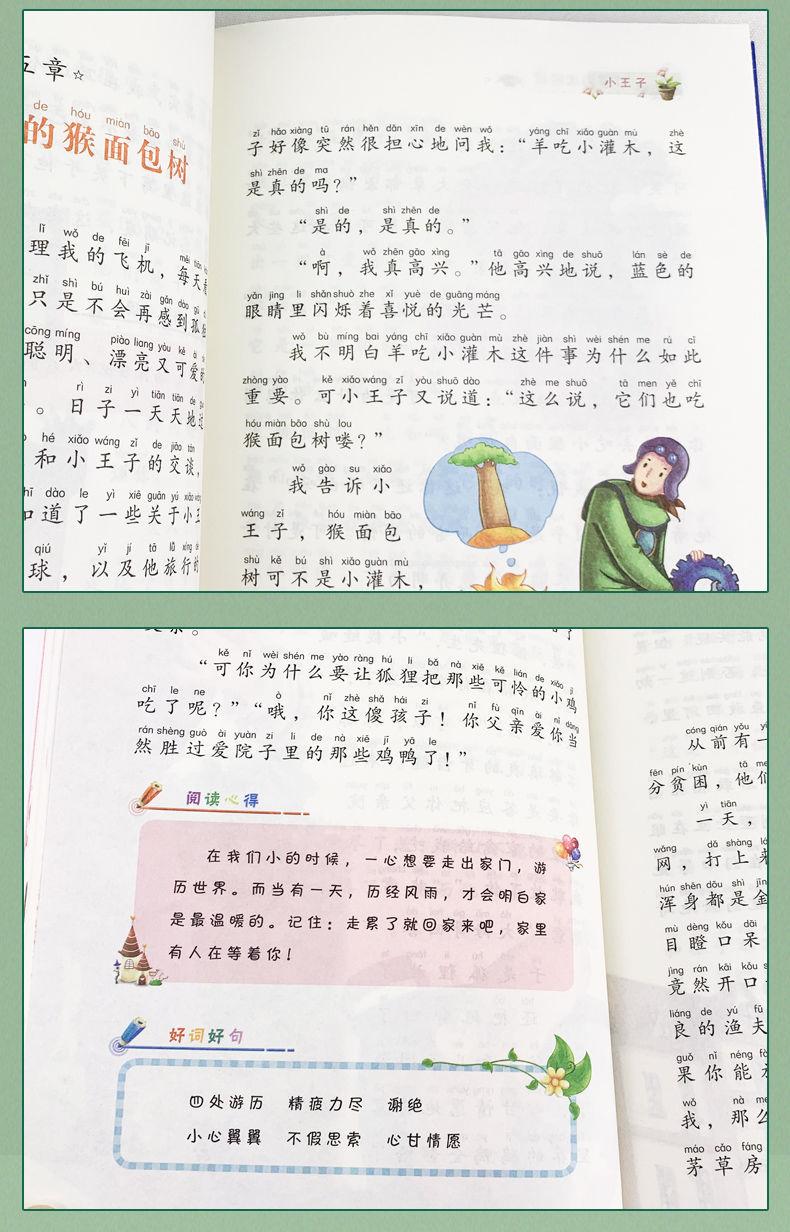 五章☆
de hóu miàn bāo shù
的猴面包树
lǐ wǒ de fēi jī měi tiān
理我的飞机，每天
zhǐ shì bú huì zài gǎn dào gū
只是不会再感到孤
cōng míng piào liang yòu kě ài
聪明、漂亮又可爱的
rì zi yì tiān tiān de
。日子一天天地过
hé xiǎo wáng zǐ de jiāo tán
和小王子的交谈，
dào le yì xiē guān yú xiǎo
知道了一些关于小王
qiú yǐ jí tā lǚ xíng de
球，以及他旅行的
小王子
zǐ hǎo xiàng tū rán hěn dān xīn de wèn wǒ yáng chī xiǎo guàn mù zhè
子好像突然很担心地问我：“羊吃小灌木，这
shì zhēn de ma
是真的吗？”
shì de shì zhēn de
“是的，是真的。”
à wǒ zhēn gāo xìng tā gāo xìng de shuō lán sè de
“啊，我真高兴。”他高兴地说，蓝色的
yǎn jing li shǎn shuò zhe xǐ yuè de guāng máng
眼睛里闪烁着喜悦的光芒。
wǒ bù míng bai yáng chī xiǎo guàn mù zhè jiàn shì wèi shén me rú cǐ
我不明白羊吃小灌木这件事为什么如此
zhòng yào kě xiǎo wáng zǐ yòu shuō dào zhè me shuō tā men yě chī
重要。可小王子又说道：“这么说，它们也吃
hóu miàn bāo shù lou
猴面包树喽？”
wǒ gào su xiǎo
我告诉小
wáng zǐ hóu miàn bāo
王子，猴面包
shù kě bú shì xiǎo guàn mù
树可不是小灌木，
kě nǐ wèi shén me yào ràng hú li bǎ nà xiē kě lián de xiǎo jī
“可你为什么要让狐狸把那些可怜的小鸡
chī le ne ò nǐ zhè shǎ hái zi nǐ fù qīn ài nǐ dāng
吃了呢？”“哦，你这傻孩子！你父亲爱你当
rán shèng guò ài yuàn zi li de nà xiē jī yā le
然胜过爱院子里的那些鸡鸭了！”
阅读心得
在我们小的时候，一心想要走出家门，游
历世界。而当有一天，历经风雨，才会明白家
是最温暖的。记住：走累了就回家来吧，家里
有人在等着你！
好词好句
四处游历 精疲力尽 谢绝
小心翼翼 不假思索 心甘情愿
cóng qián yǒu yí
从前有一
fēn pín kùn tā me
分贫困，他们
yì tiān
一天，
wǎng dǎ shàng lá
网，打上来
hún shēn dōu shì jīn
浑身都是金
mù dèng kǒu dāi
目瞪口呆
jìng rán kāi kǒu s
竟然开口
liáng de yú fū
良的渔夫
guǒ nǐ néng
果你能
wǒ nà me
我，那么
máo cǎo fáng
茅草房